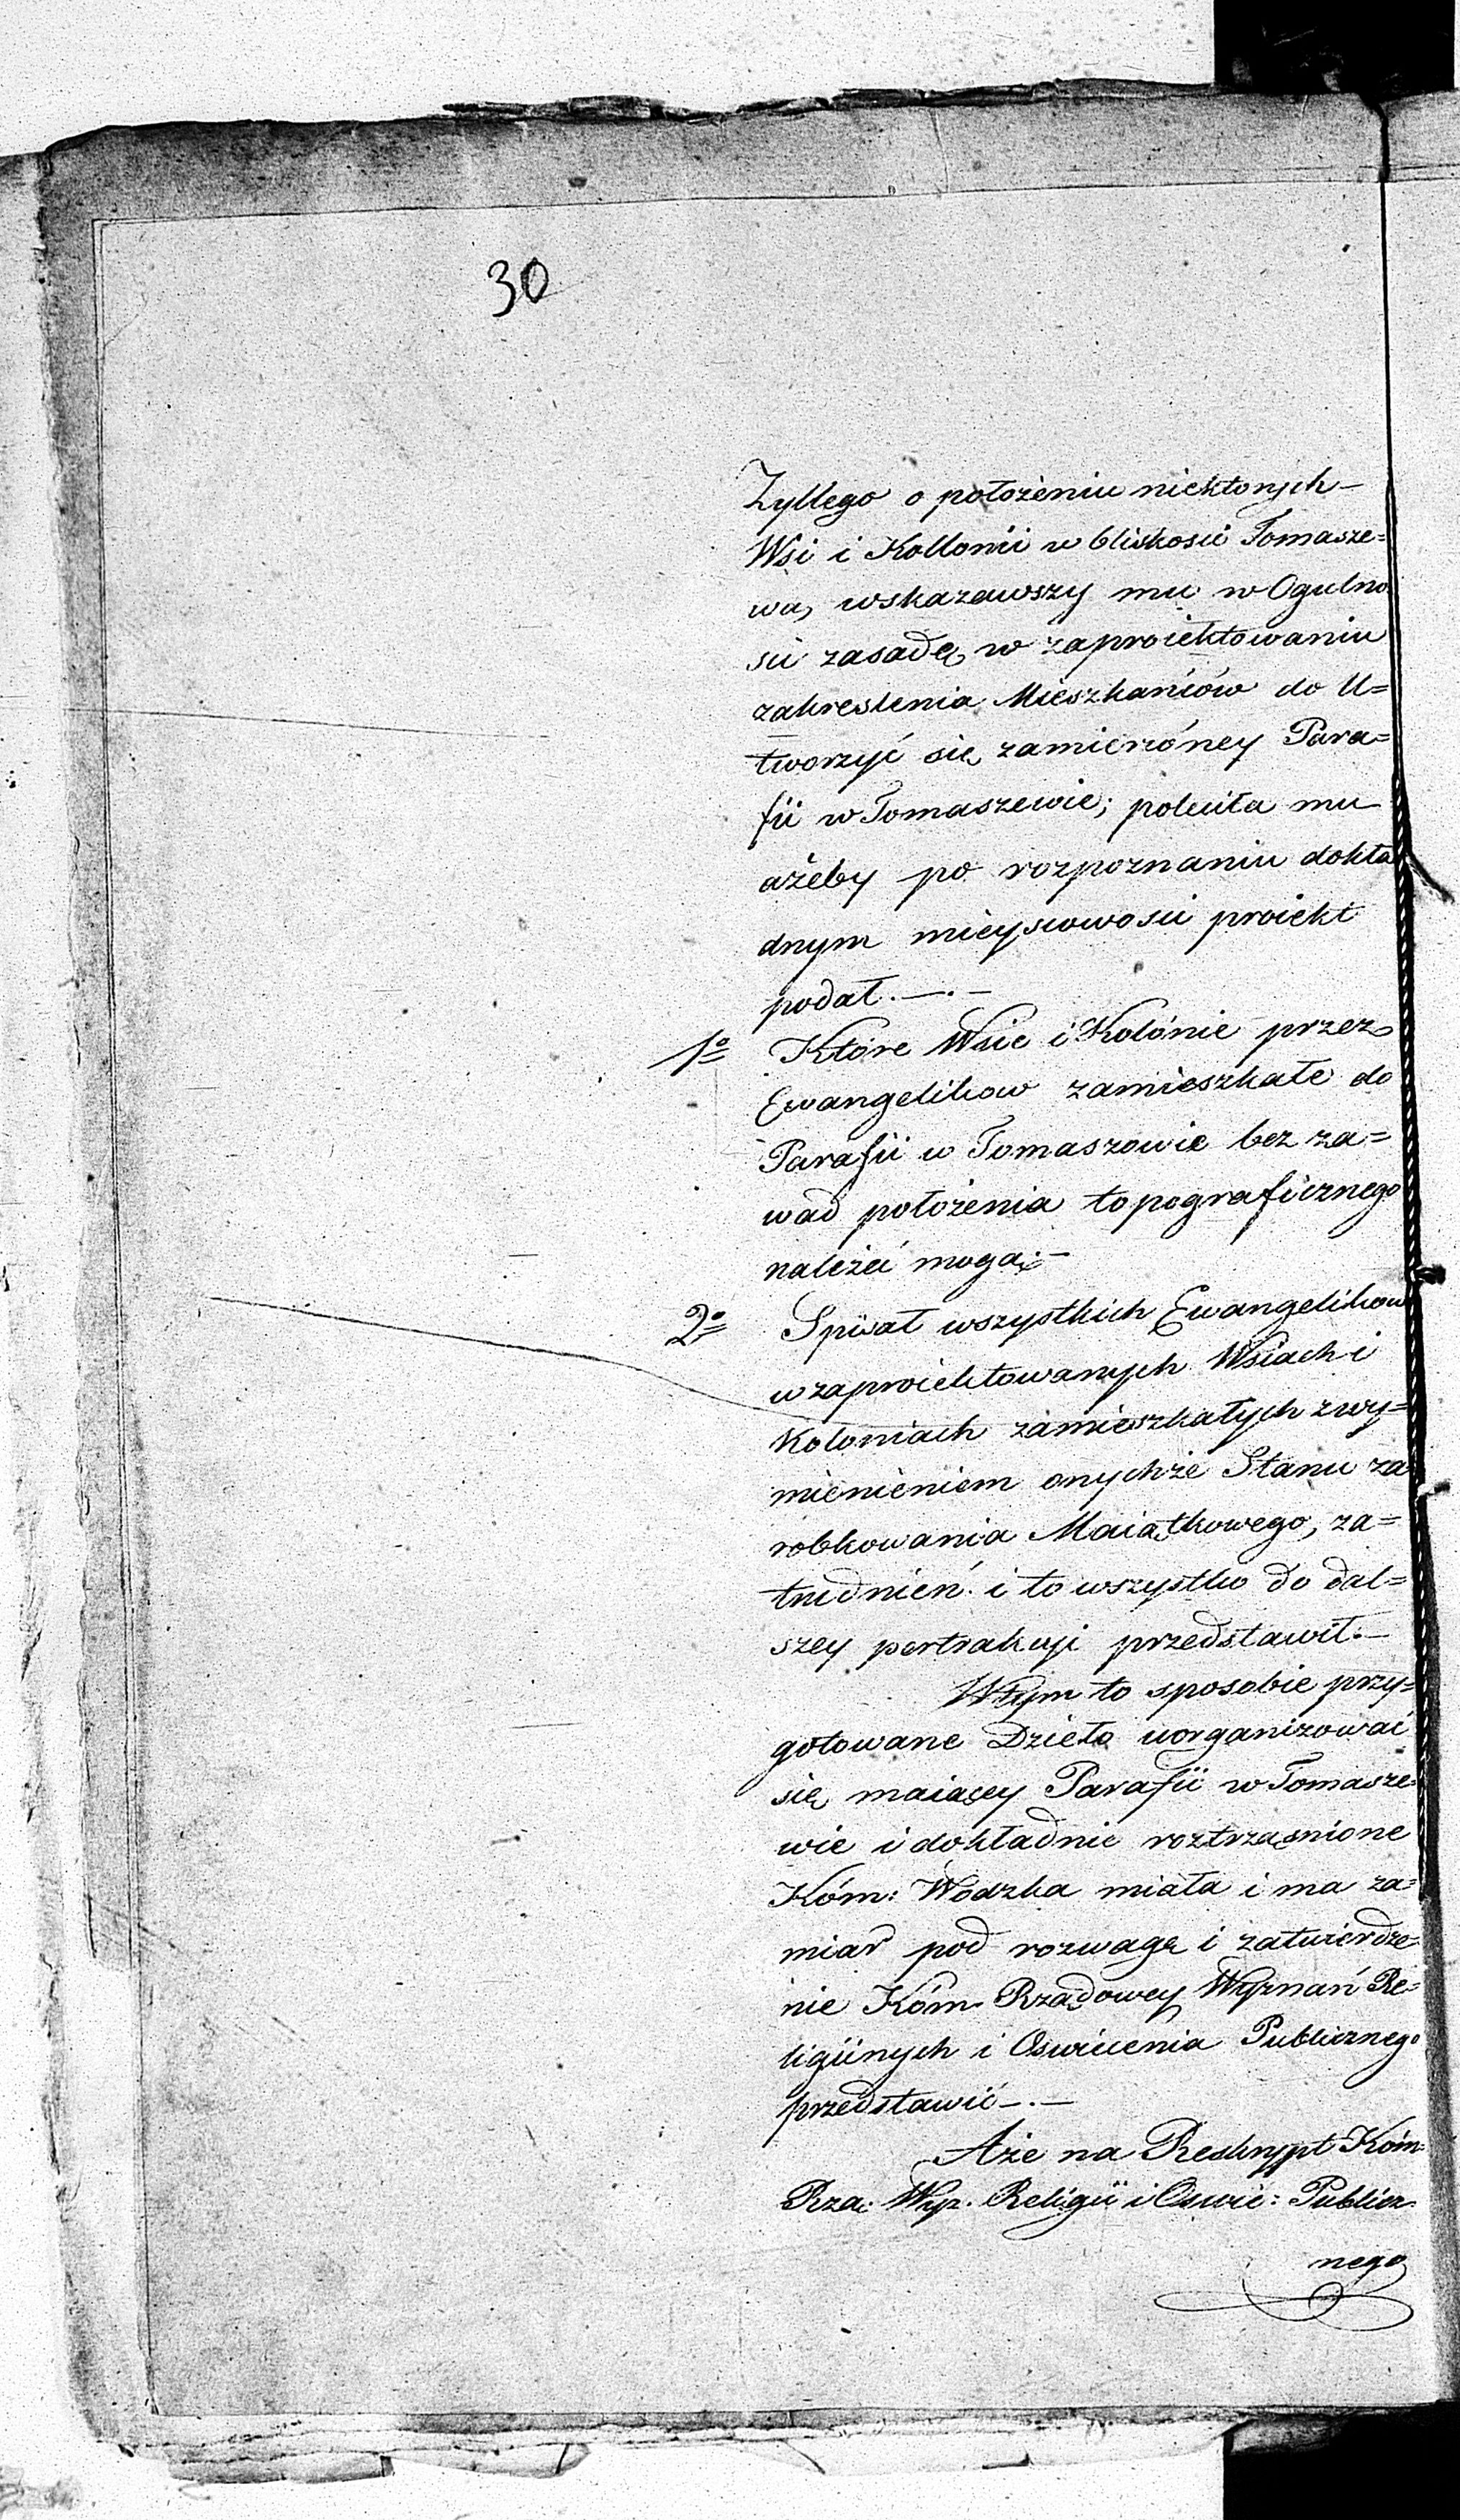 30
Zyllego o położeniu niektorych –
Wsi i Kollonii w bliskosci Tomasze=
wa, wskazawszy mu w Ogulno
sci zasadę w zaproiektowaniu
zakreslenia Mieszkańców do U=
tworzyć się zamierzóney Para=
fii w Tomaszewie; poleciła mu
ażeby po rozpoznaniu dokła
dnym mieyscowosci proiekt
podał. —.—
1o Które Wsie i Kolónie przez
Ewangelikow zamieszkałe do
Parafii w Tomaszowie bez za=
wad położenia topograficznego
należeć mogą. –
2o Spisał wszystkich Ewangelikow
w zaproiektowanych Wsiach i
Koloniach zamieszkałych z wy=
mienieniem onychże Stanu za
robkowania Maiątkowego, za=
trudnień i to wszystko do dal=
szey pertrakcyi przedstawił. –
W tym to sposobie przy=
gotowane Dzieło uorganizować
się maiącey Parafii w Tomasze=
wie i dokładnie roztrząsnione
Kóm: Wodzka miała i ma za=
miar pod rozwagę i zatwierdze=
nie Kóm. Rządowey Wyznań Re=
ligiinych i Oswiecenia Publicznego
przedstawić –.–
Aże na Reskrypt Kóm:
Rzą: Wyz. Religii i Oswie: Publicz
nego